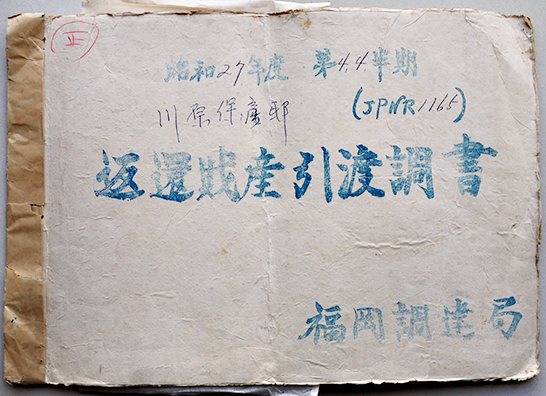 正
昭和27年度 第4.4半期
川原保廣邸 (JPNR1165)
返還財産引渡調書
福岡調達局